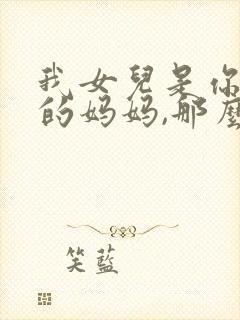 我女兒是你
的妈妈,那麼
笑藍